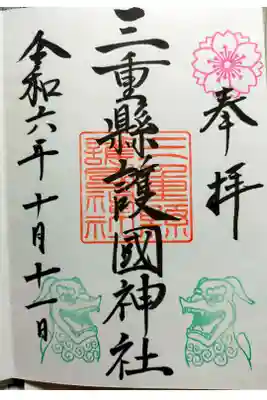 奉拝
三重縣護國神社
令和六年十月十一日